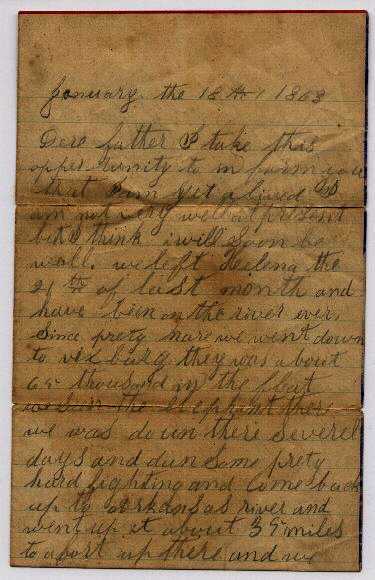 January the 18th 1863
Dere father I take this
oppertunity to in form you
that I am yet alived I
am not very well at present
but I think i will soon be
well. we left Helena the
21th of last month and
have bin on the river ever
since prety nare we went down
to vix burg they was about
65 thousand in the fleat
we saw the elephint there
we was down there severel
days and dun some prety
hard fighting and come back
up to arkansas river and
went up it about 35 miles
to a port up there and we